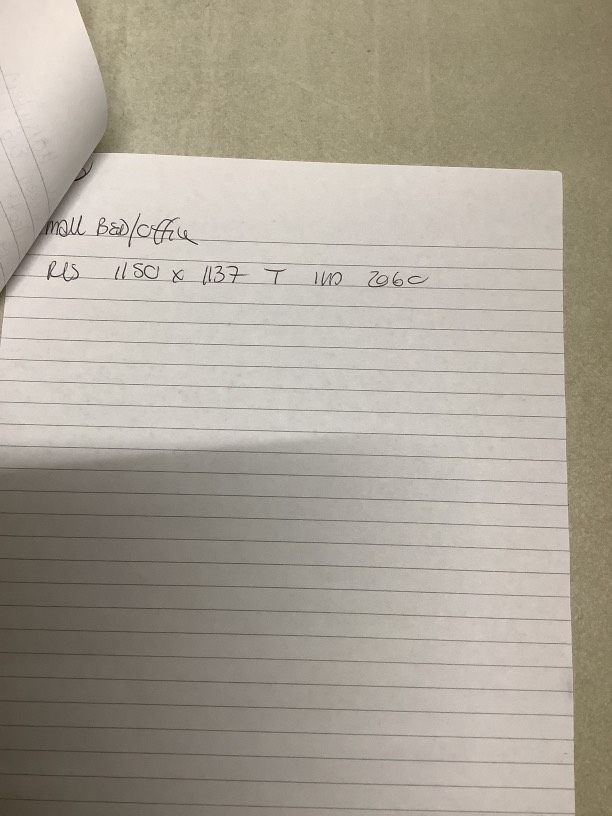 mall BED/Office
RLS 1150 x 1137 T IND 2060